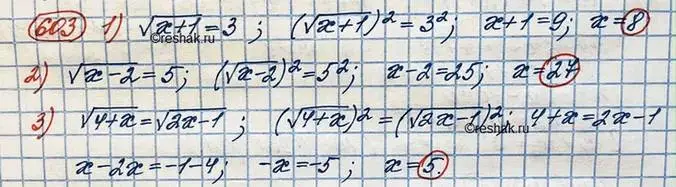 603 1) √x+1 = 3 ; (√x+1)² = 3²; x+1 = 9; x = 8
©reshak.ru
2) √x-2 = 5; (√x-2)² = 5²; x-2 = 25; x = 27
3) √4+x = √2x-1 ; (√4+x)² = (√2x-1)²; 4+x = 2x-1
©reshak.ru
x-2x = -1-4; -x = -5; x = 5.